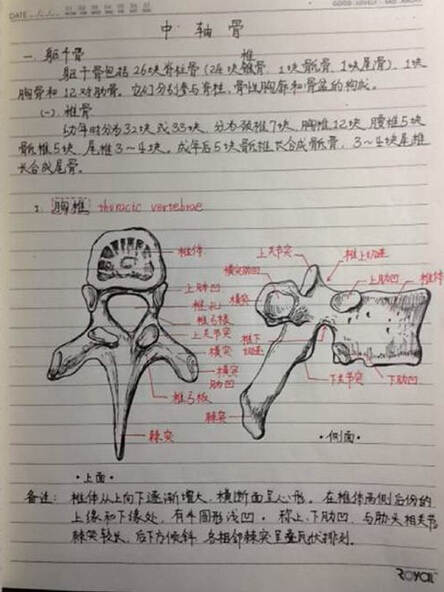 DATE
中 轴 骨
一. 躯干骨
椎
躯干骨包括26块脊柱骨(24块椎骨、1块骶骨、1块尾骨)、1块
胸骨和12对肋骨。它们分别参与脊柱、骨性胸廓和骨盆的构成。
(一). 椎骨
幼年时分为32块或33块、分为颈椎7块、胸椎12块、腰椎5块
骶椎5块、尾椎3~4块。成年后5块骶椎长合成骶骨、3~4块尾椎
长合成尾骨。
胸椎 thoracic vertebrae
椎体
上肋凹
椎孔
椎弓根
上关节突
横突
横突
肋凹
椎弓板
棘突
上关节突
椎上切迹
横突肋凹
上肋凹
椎体
横突
椎下
切迹
下关节突
下肋凹
棘突
·侧面·
·上面·
备注: 椎体从上向下逐渐增大, 横断面呈心形。在椎体两侧后份的
上缘和下缘处, 有半圆形浅凹, 称上、下肋凹, 与肋头相关节
棘突较长, 后下方倾斜, 各相邻棘突呈叠瓦状排列。
ROYAL